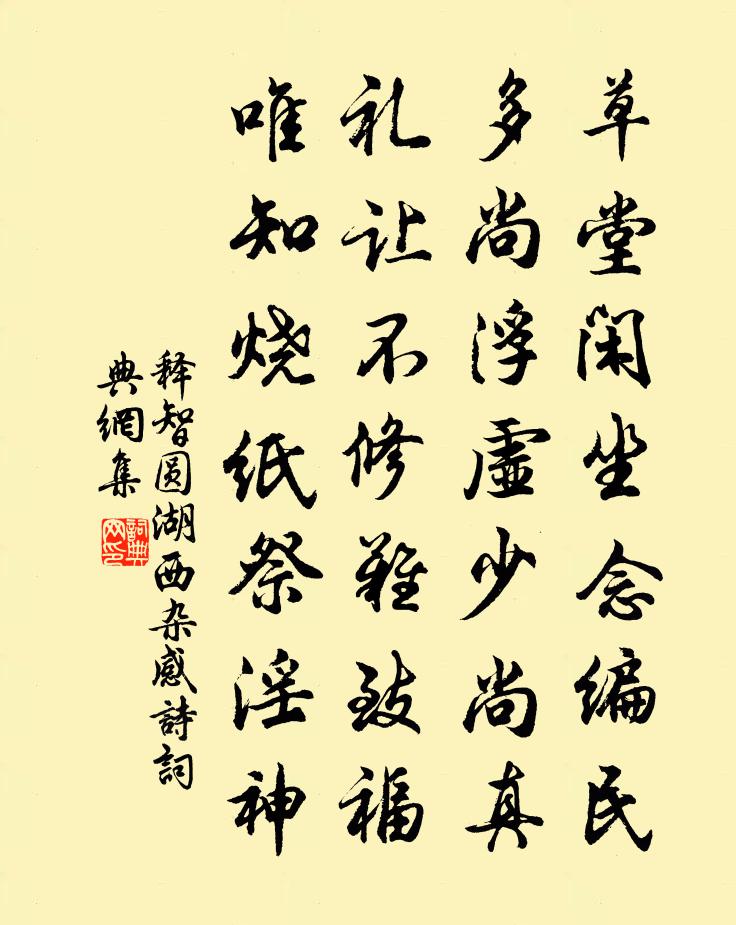 草堂闲坐念编民
多尚浮虚少尚真
礼让不修难致福
唯知烧纸祭淫神
释智圆湖西杂感詩詞
典網集
詞典网印